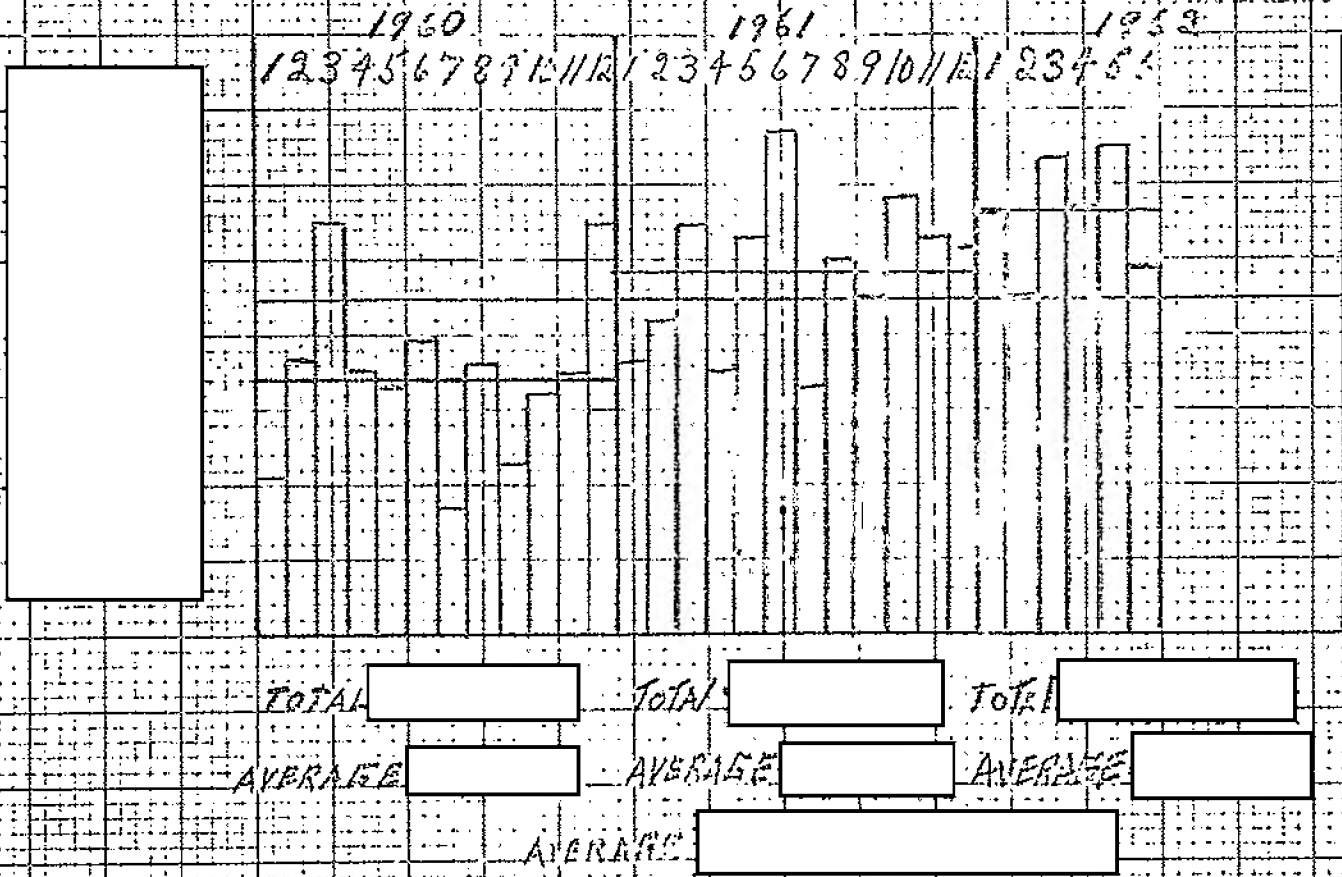 1960 1961 1962
1 2 3 4 5 6 7 8 9 10 11 12 1 2 3 4 5 6 7 8 9 10 11 12 1 2 3 4 5 6
TOTAL TOTAL TOTAL
AVERAGE AVERAGE AVERAGE
AVERAGE